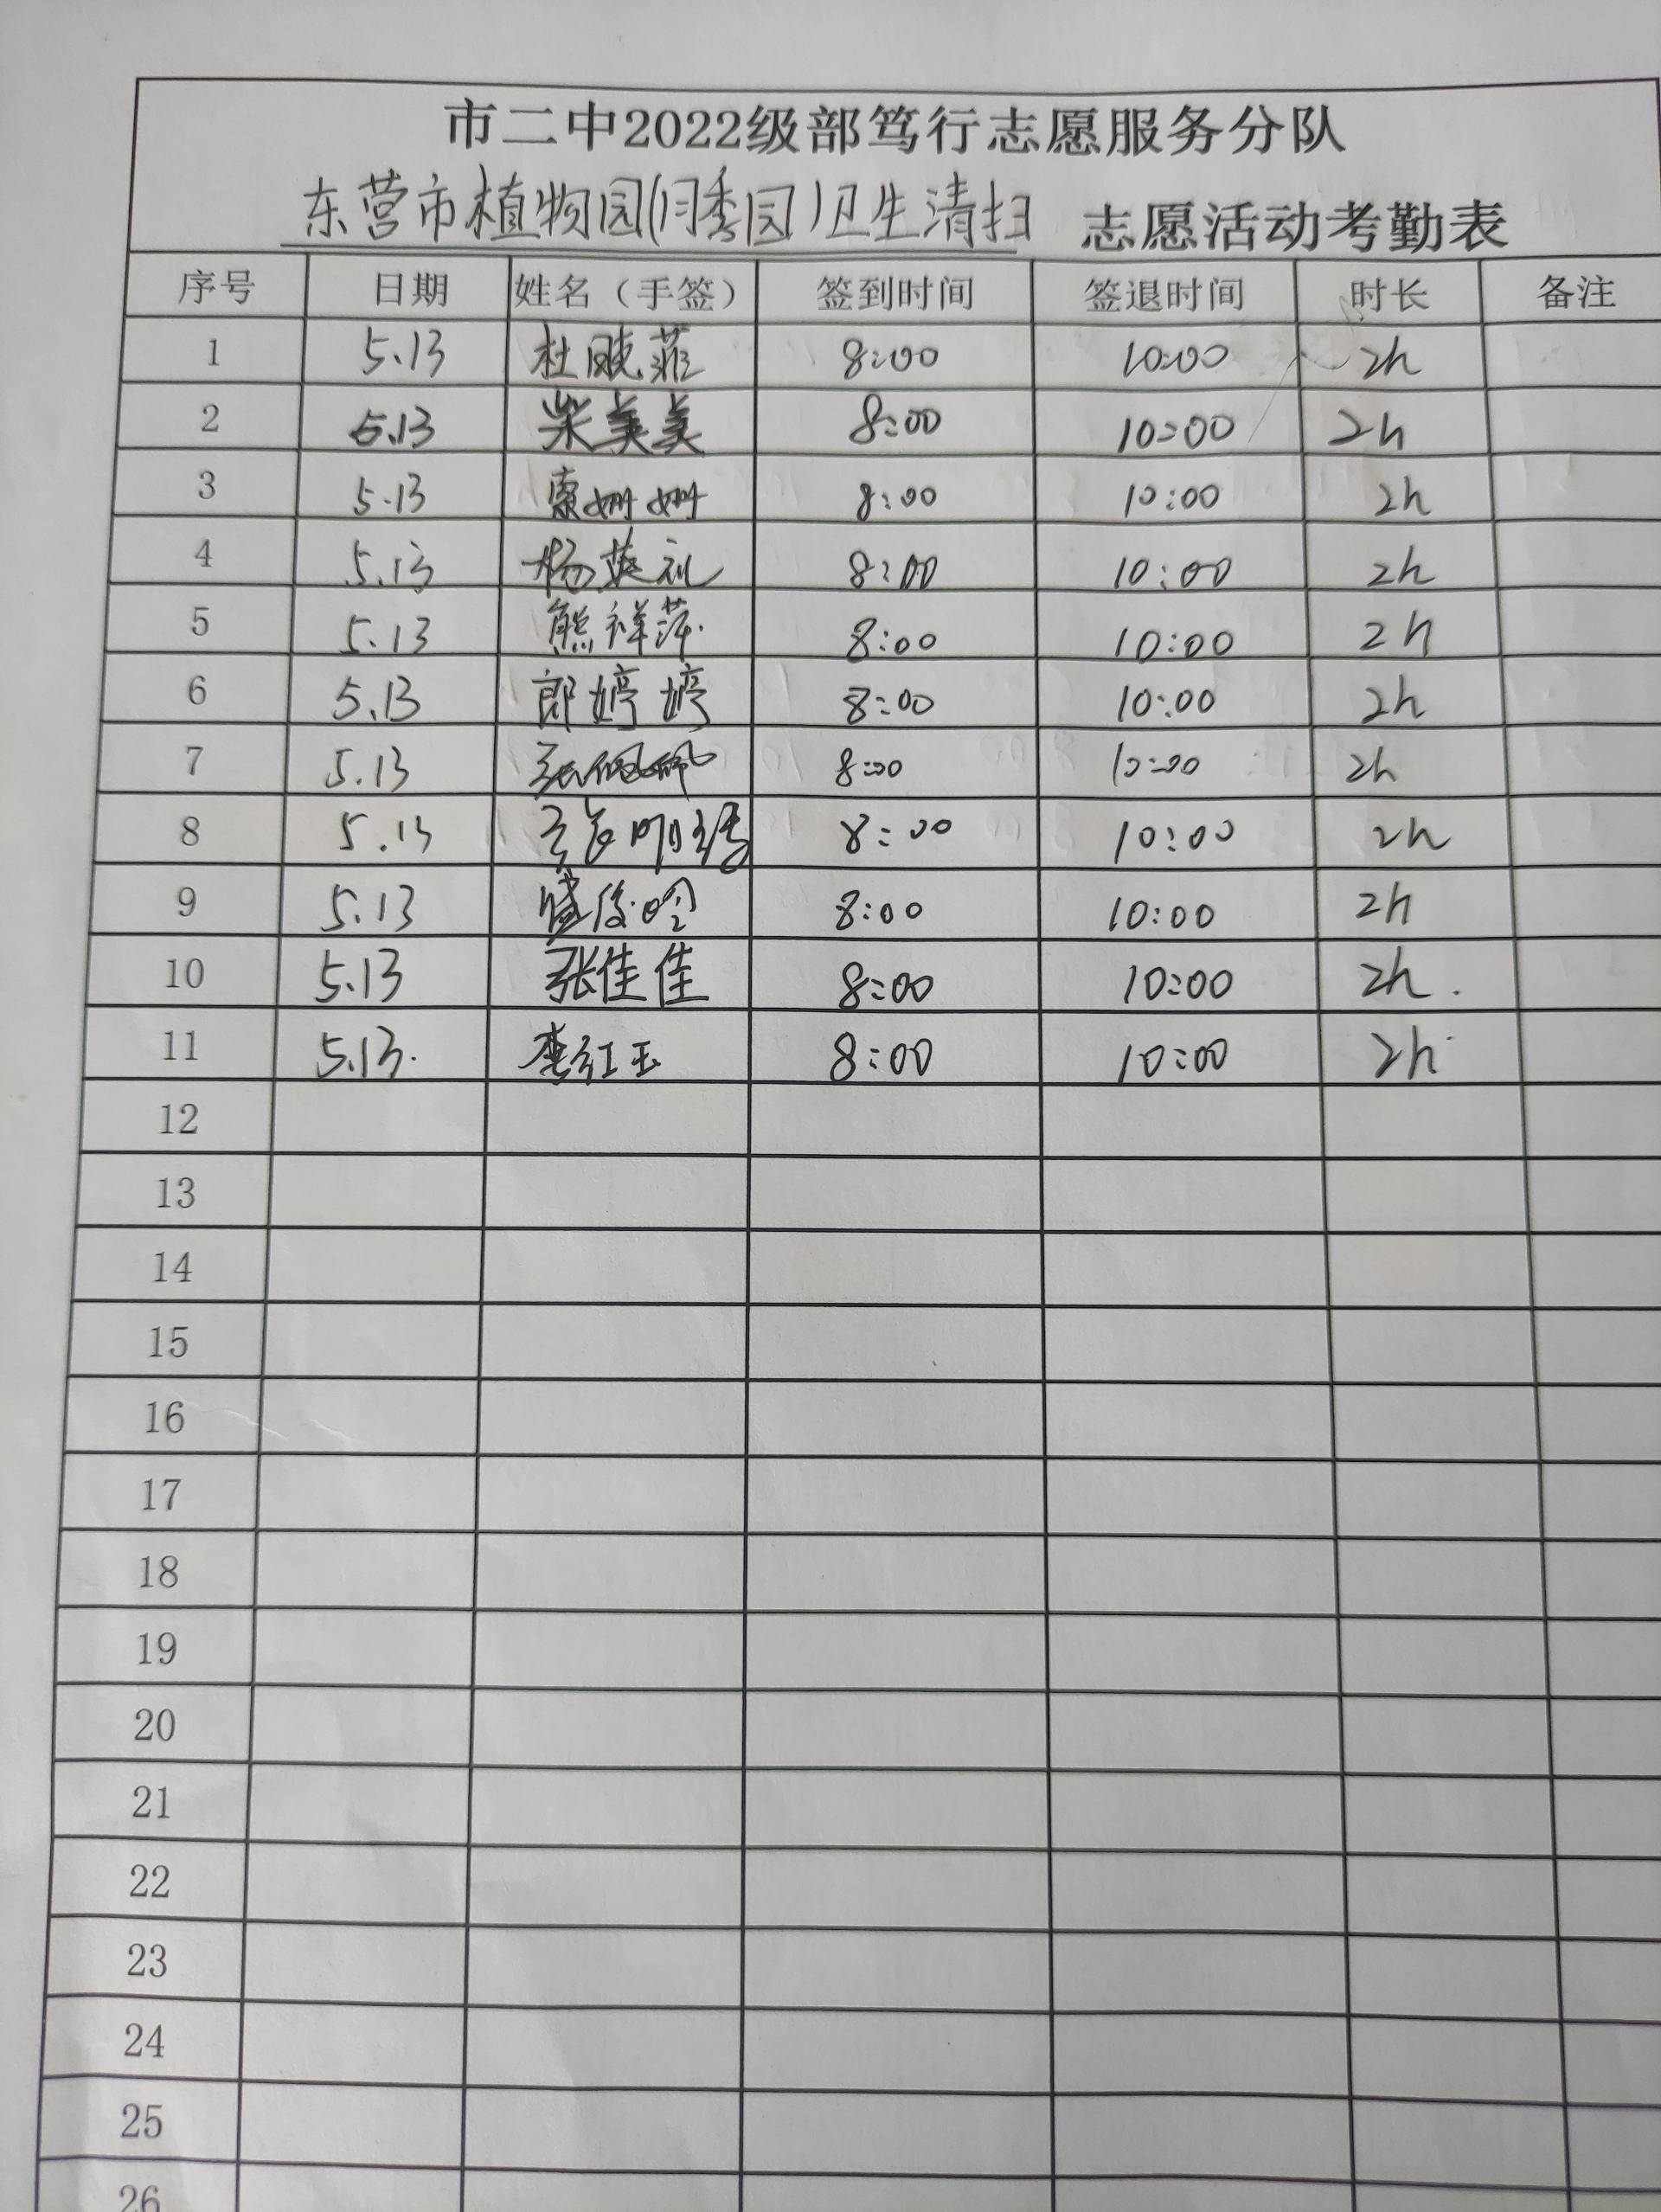 市二中2022级部笃行志愿服务分队
东营市植物园(月季园)卫生清扫 志愿活动考勤表
序号 日期 姓名（手签） 签到时间 签退时间 时长 备注
1 5.13 杜晓菲 8:00 10:00 2h
2 5.13 柴美美 8:00 10:00 2h
3 5.13 索姗姗 8:00 10:00 2h
4 5.13 杨英礼 8:00 10:00 2h
5 5.13 熊祥萍 8:00 10:00 2h
6 5.13 郎婷婷 8:00 10:00 2h
7 5.13 8:00 10:00 2h
8 5.13 8:00 10:00 2h
9 5.13 8:00 10:00 2h
10 5.13 张佳佳 8:00 10:00 2h.
11 5.13. 李红玉 8:00 10:00 2h
12
13
14
15
16
17
18
19
20
21
22
23
24
25
26